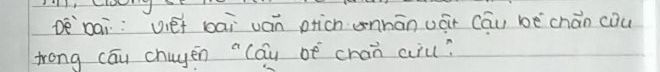 Đề bài: Viết bài văn phân tích nhân vật Cậu bé chăn cừu
trong câu chuyện "Cậu bé chăn cừu".